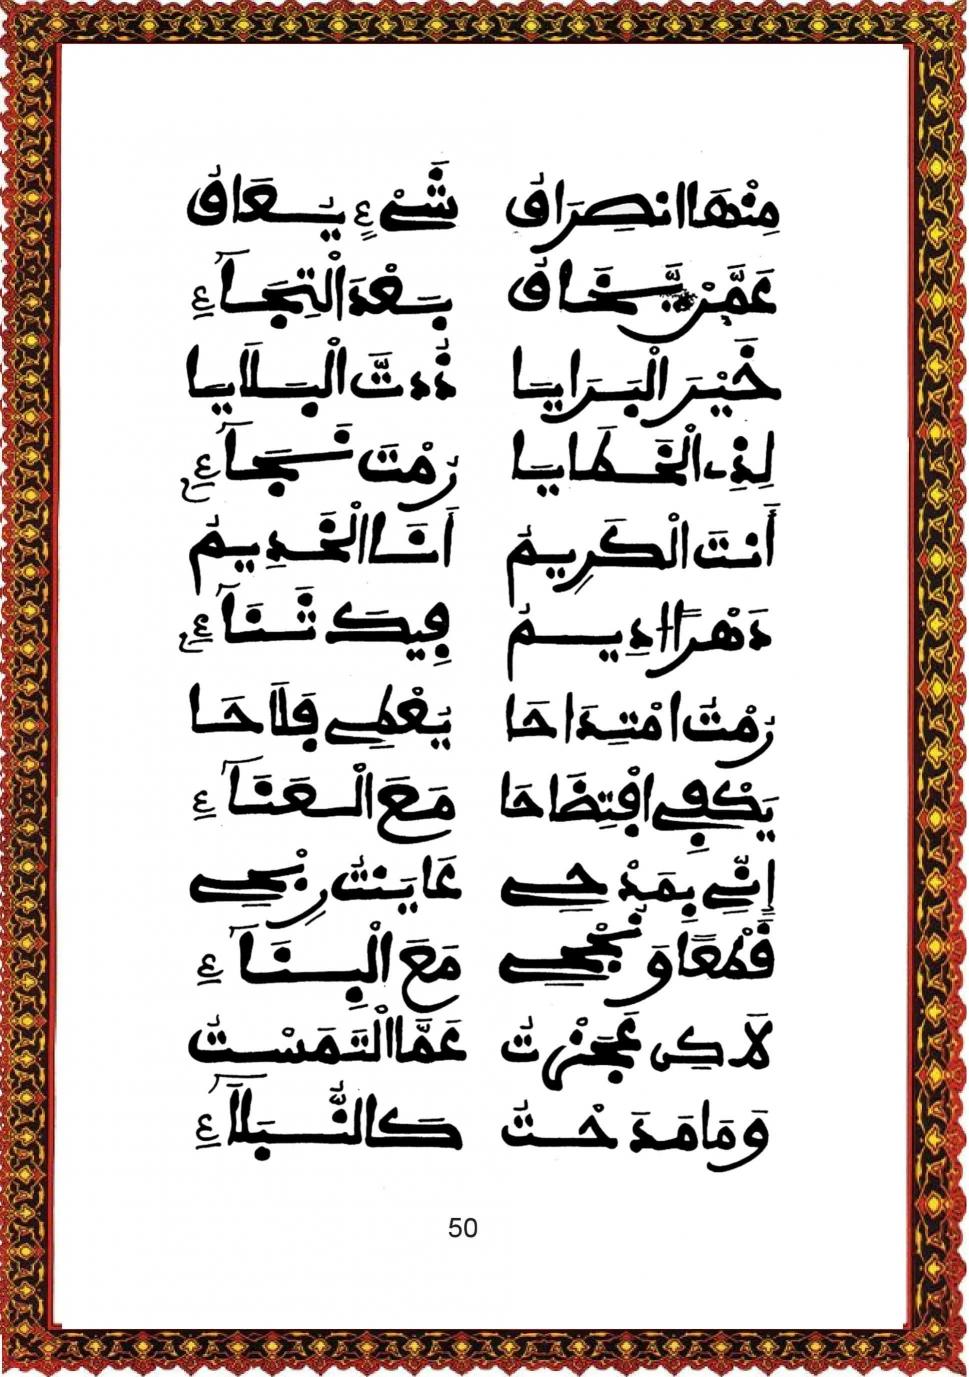 مِنْهَا انصِرَافُ شَيْءٍ يُعَافُ
عَمَّنْ يَّخَافُ بَعْدَ الْتِجَآءِ
خَيْرَ الْبَرَايَا ذُدتَّ الْبَلَايَا
لِذِي الْخَطَايَا رُمْتَ نَجَآءِ
أَنتَ الْكَرِيمُ أَنَا الْخَدِيمُ
دَهْرًا أُدِيمُ فِيكَ ثَنَآءِ
رُمْتُ امْتِدَاحَا يُعْطِي فَلَاحَا
يَكْفِي افْتِضَاحَا مَعَ الْعَنَآءِ
إِنِّي بِمَدْحِي عَايَنتُ رِبْحِي
قَطْعًا وَنُجْحِي مَعَ الْبِنَآءِ
لَاكِن عَجَزْتُ عَمَّا الْتَمَسْتُ
وَمَا مَدَحْتُ كَالنُّبَلَآءِ
50